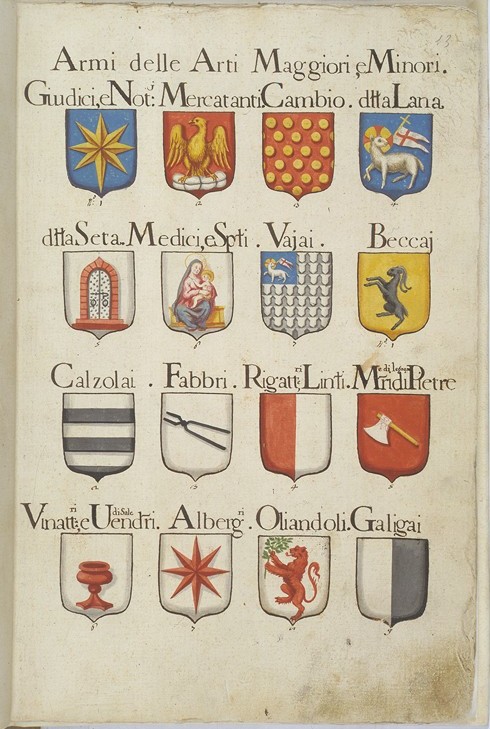 13
Armi delle Arti Maggiori, e Minori.
Giudici, e Not:i Mercatanti. Cambio. dtta Lana.
N.° 1 2 3 4
dtta Seta. Medici, e Spti. Vajai. Beccaj
5 6 7 N.° 1
Calzolai. Fabbri. Rigatt:ri Linti. Mri di Pietre e di legname
2 3 4 5
Vinatt:ri, e Uendri. di Sale Alberg:ri. Oliandoli. Galigai
6 7 8 9